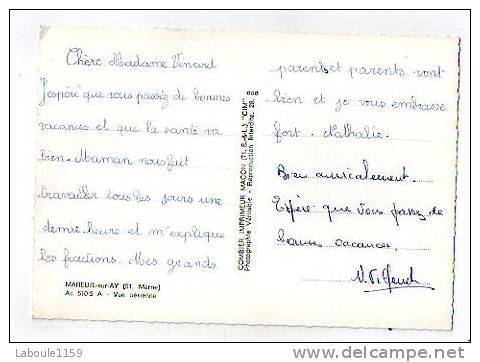 Chère Madame Vincard
J'espère que vous passez de bonnes
vacances et que la santé va
bien. Maman nous fait
travailler tous les jours une
demie heure et m'explique
les fractions. Mes grands
MAREUIL-sur-AY (51. Marne)
Ac 510S A - Vue aérienne
COMBIER IMPRIMEUR MACON (71. S.-&-L.) "CIM"
Photographie Véritable - Reproduction Interdite.
parents et parents vont
bien et je vous embrasse
fort. Nathalie.
Bien amicalement.
Espère que vous passez de
bonnes vacances.
Laboule1159
http://www.delcampe.net